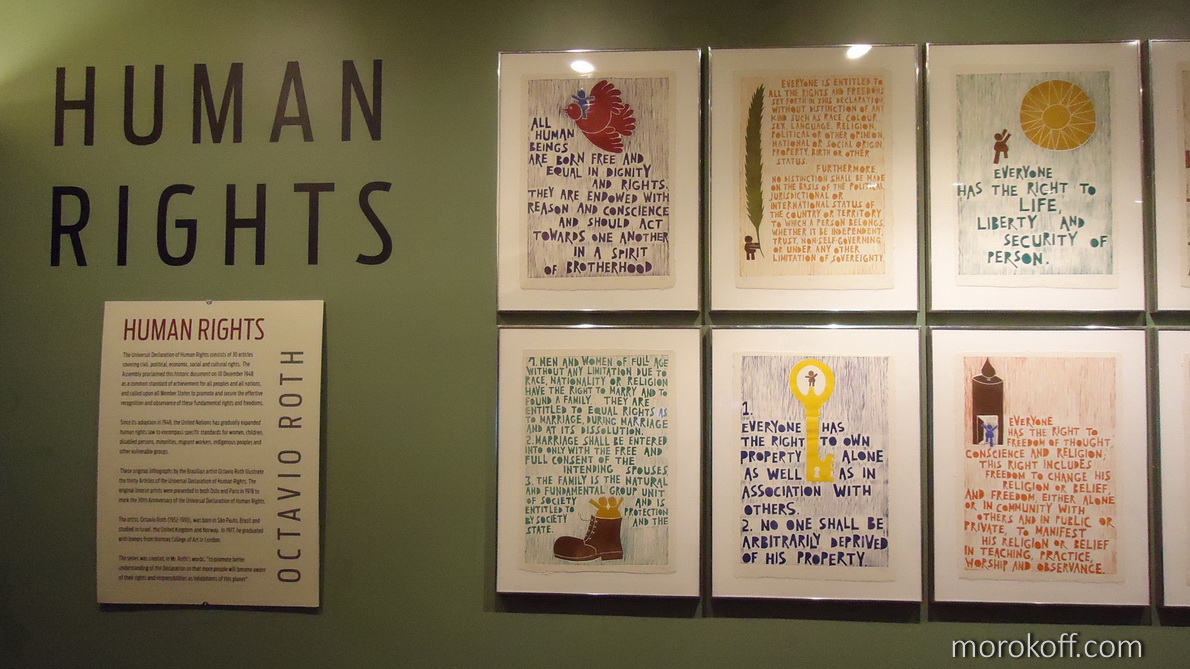 HUMAN
RIGHTS
HUMAN RIGHTS
The Universal Declaration of Human Rights consists of 30 articles
covering civil, political, economic, social and cultural rights. The
Assembly proclaimed this historic document on 10 December 1948
as a common standard of achievement for all peoples and all nations,
and called upon all Member States to promote and secure the effective
recognition and observance of these fundamental rights and freedoms.
Since its adoption in 1948, the United Nations has gradually expanded
human rights law to encompass specific standards for women, children,
disabled persons, minorities, migrant workers, indigenous peoples and
other vulnerable groups.
These original lithographs by the Brazilian artist Octavio Roth illustrate
the thirty Articles of the Universal Declaration of Human Rights. The
original linocut prints were presented to both Oslo and Paris in 1978 to
mark the 30th Anniversary of the Universal Declaration of Human Rights.
The artist, Octavio Roth was born in São Paulo, Brazil and
studied in Israel, the United Kingdom and Norway. In 1977, he graduated
with honors from Hornsey College of Art in London.
The series was created, in Mr. Roth's words, "to promote better
understanding of the Declaration so that more people will become aware
of their rights and responsibilities as inhabitants of this planet"
OCTAVIO ROTH
ALL
HUMAN
BEINGS
ARE BORN FREE AND
EQUAL IN DIGNITY
AND RIGHTS.
THEY ARE ENDOWED WITH
REASON AND CONSCIENCE
AND SHOULD ACT
TOWARDS ONE ANOTHER
IN A SPIRIT
OF BROTHERHOOD
EVERYONE IS ENTITLED TO
ALL THE RIGHTS AND FREEDOMS
SET FORTH IN THIS DECLARATION
WITHOUT DISTINCTION OF ANY
KIND SUCH AS RACE, COLOUR,
SEX, LANGUAGE, RELIGION,
POLITICAL OR OTHER OPINION,
NATIONAL OR SOCIAL ORIGIN
PROPERTY, BIRTH OR OTHER
STATUS.
FURTHERMORE,
NO DISTINCTION SHALL BE MADE
ON THE BASIS OF THE POLITICAL
JURISDICTIONAL OR
INTERNATIONAL STATUS OF
THE COUNTRY OR TERRITORY
TO WHICH A PERSON BELONGS,
WHETHER IT BE INDEPENDENT,
TRUST, NON-SELF-GOVERNING
OR UNDER ANY OTHER
LIMITATION OF SOVEREIGNTY.
EVERYONE
HAS THE RIGHT TO
LIFE,
LIBERTY AND
SECURITY OF
PERSON.
1. MEN AND WOMEN OF FULL AGE
WITHOUT ANY LIMITATION DUE TO
RACE, NATIONALITY OR RELIGION
HAVE THE RIGHT TO MARRY AND TO
FOUND A FAMILY. THEY ARE
ENTITLED TO EQUAL RIGHTS AS
TO MARRIAGE, DURING MARRIAGE
AND AT ITS DISSOLUTION.
2. MARRIAGE SHALL BE ENTERED
INTO ONLY WITH THE FREE AND
FULL CONSENT OF THE
INTENDING SPOUSES
3. THE FAMILY IS THE NATURAL
AND FUNDAMENTAL GROUP UNIT
OF SOCIETY AND IS
ENTITLED TO PROTECTION
BY SOCIETY AND THE
STATE.
1.
EVERYONE HAS
THE RIGHT TO OWN
PROPERTY ALONE
AS WELL AS IN
ASSOCIATION WITH
OTHERS.
2. NO ONE SHALL BE
ARBITRARILY DEPRIVED
OF HIS PROPERTY.
EVERYONE
HAS THE RIGHT TO
FREEDOM OF THOUGHT,
CONSCIENCE AND RELIGION;
THIS RIGHT INCLUDES
FREEDOM TO CHANGE HIS
RELIGION OR BELIEF,
AND FREEDOM, EITHER ALONE
OR IN COMMUNITY WITH
OTHERS AND IN PUBLIC OR
PRIVATE, TO MANIFEST
HIS RELIGION OR BELIEF
IN TEACHING, PRACTICE,
WORSHIP AND OBSERVANCE.
morokoff.com